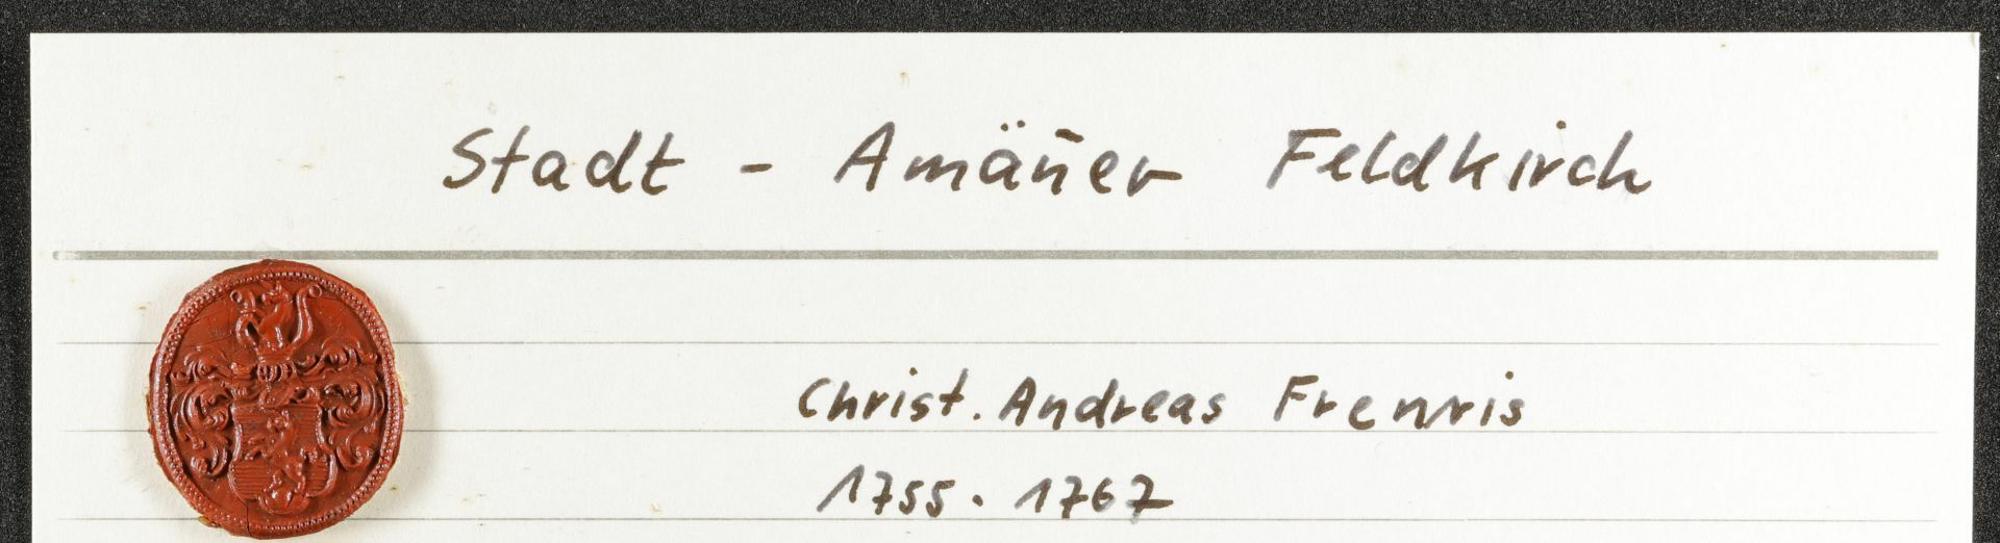 Stadt - Amän̄er Feldkirch
Christ. Andreas Frenris
1755. 1767